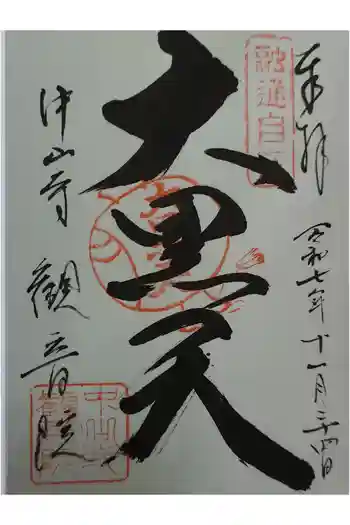 奉拝
令和七年十一月二十四日
融通自
大黒天
中山寺
觀音院